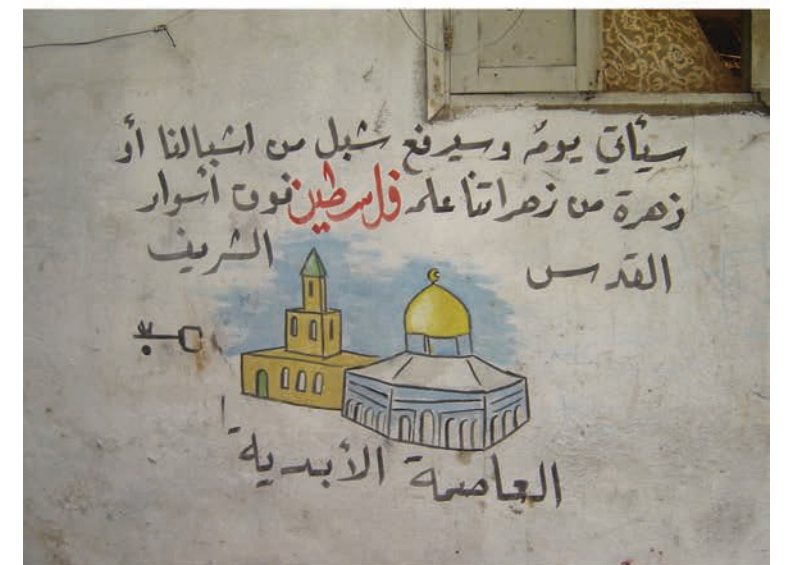 سيأتي يومٌ وسيرفع شبل من اشبالنا أو
زهرة من زهراتنا علم فلسطين فوق أسوار
القدس الشريف
العاصمة الأبدية